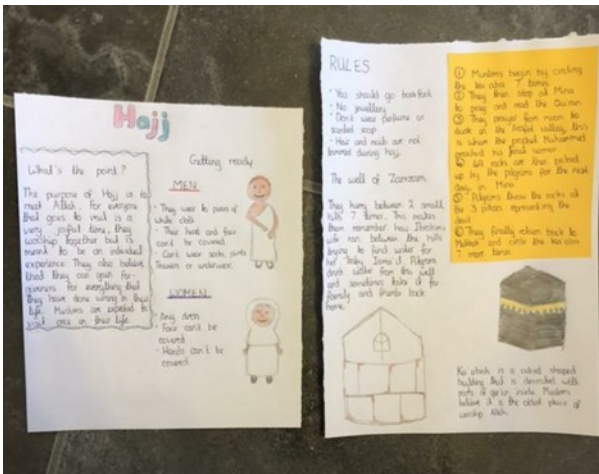 Hajj
What's the point?
The purpose of Hajj is to
meet Allah. For everyone
that goes to visit is a
very joyful time, they
worship together but is
meant to be an individual
experience. They also believe
that they can gain for-
giveness for everything that
they have done wrong in their
life. Muslims are expected to
visit once in their life.
Getting ready
MEN
• They wear to pieces of
white cloth
• Their head and face
can't be covered.
• Can't wear socks, pants
trousers or underwear.
WOMEN
• Any dress
• Face can't be
covered
• Hands can't be
covered.
RULES
• You should go barefoot
• No jewellery
• Don't wear perfume or
scented soap
• Hair and nails are not
trimmed during hajj.
The well of Zamzam
They hurry between 2 small
hills 7 times. This makes
them remember how Ibrahim's
wife ran between the hills
trying to find water for
her baby Isma'il. Pilgrims
drink water from this well
and sometimes take it for
family and friends back
home.
① Muslims begin by circling
the ka'aba 7 times.
② They then stop at Mina
to pray and read the Qu'ran
③ They prayer from noon to
dusk in the Arafat valley, this
is where the prophet Muhammad
preached his final sermon
④ 49 rocks are then picked
up by the pilgrims for the next
day, in Mina.
⑤ Pilgrims throw the rocks at
the 3 pillars representing the
devil
⑥ They finally return back to
Makkah and circle the ka'aba
7 more times.
Ka'abah is a cubed shaped
building that is decorated with
parts of qur'an inside. Muslims
believe it is the oldest place of
worship Allah.